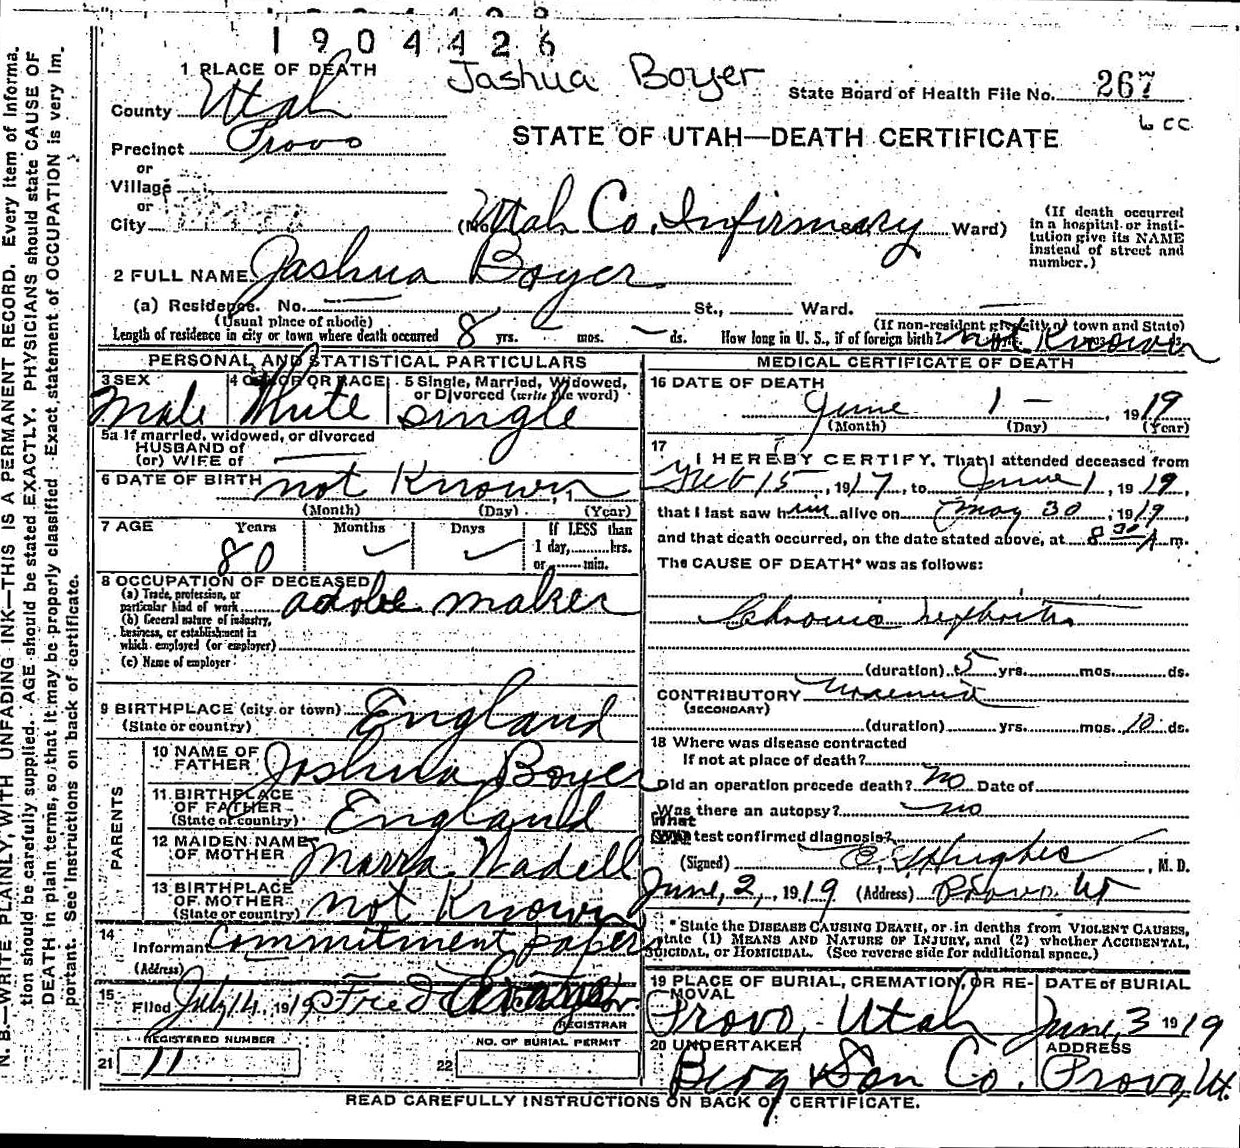 1904426
Jashua Boyer
1 PLACE OF DEATH
State Board of Health File No. 267
6 CC
County Utah
STATE OF UTAH—DEATH CERTIFICATE
Precinct Provo
or
Village
or
City (No. Utah Co. Infirmary Ward)
(If death occurred in a hospital or institution give its NAME instead of street and number.)
2 FULL NAME Jashua Boyer
(a) Residence. No. St., Ward.
(Usual place of abode) (If non-resident give city or town and State)
Length of residence in city or town where death occurred 8 yrs. mos. ds. How long in U. S., if of foreign birth? not Known
PERSONAL AND STATISTICAL PARTICULARS
3 SEX Male
4 COLOR OR RACE White
5 Single, Married, Widowed, or Divorced (write the word) single
5a If married, widowed, or divorced
HUSBAND of
(or) WIFE of
6 DATE OF BIRTH not Known
(Month) (Day) (Year)
7 AGE Years 80 Months Days If LESS than
1 day, hrs.
or min.
8 OCCUPATION OF DECEASED
(a) Trade, profession, or particular kind of work adobe maker
(b) General nature of industry, business, or establishment in which employed (or employer)
(c) Name of employer
9 BIRTHPLACE (city or town) England
(State or country)
PARENTS
10 NAME OF FATHER Joshua Boyer
11 BIRTHPLACE OF FATHER England
(State or country)
12 MAIDEN NAME OF MOTHER Marra Wadell
13 BIRTHPLACE OF MOTHER not Known
(State or country)
14 Informant Commitment papers
(Address)
15 Filed July 14, 1919 Fred
REGISTRAR
REGISTERED NUMBER
21 11
NO. OF BURIAL PERMIT
22
MEDICAL CERTIFICATE OF DEATH
16 DATE OF DEATH
June 1 — , 1919
(Month) (Day) (Year)
17 I HEREBY CERTIFY, That I attended deceased from
Feb 15, 1917, to June 1, 1919,
that I last saw him alive on May 30, 1919,
and that death occurred, on the date stated above, at 8 30 A m.
The CAUSE OF DEATH* was as follows:
Chronic nephritis
(duration) 5 yrs. mos. ds.
CONTRIBUTORY Uraemia
(SECONDARY)
(duration) yrs. mos. 10 ds.
18 Where was disease contracted
If not at place of death?
Did an operation precede death? No Date of
Was there an autopsy? no
What test confirmed diagnosis?
(Signed) Hughes, M. D.
June, 2, 1919 (Address) Provo. Ut
*State the DISEASE CAUSING DEATH, or in deaths from VIOLENT CAUSES,
state (1) MEANS AND NATURE OF INJURY, and (2) whether ACCIDENTAL,
SUICIDAL, or HOMICIDAL. (See reverse side for additional space.)
19 PLACE OF BURIAL, CREMATION, OR REMOVAL
Provo, Utah
DATE of BURIAL
June, 3 1919
20 UNDERTAKER
Berg & Son Co.
ADDRESS
Provo, Ut.
READ CAREFULLY INSTRUCTIONS ON BACK OF CERTIFICATE.
N. B.—WRITE PLAINLY, WITH UNFADING INK—THIS IS A PERMANENT RECORD. Every item of informa-
tion should be carefully supplied. AGE should be stated EXACTLY. PHYSICIANS should state CAUSE OF
DEATH in plain terms, so that it may be properly classified. Exact statement of OCCUPATION is very im-
portant. See instructions on back of certificate.